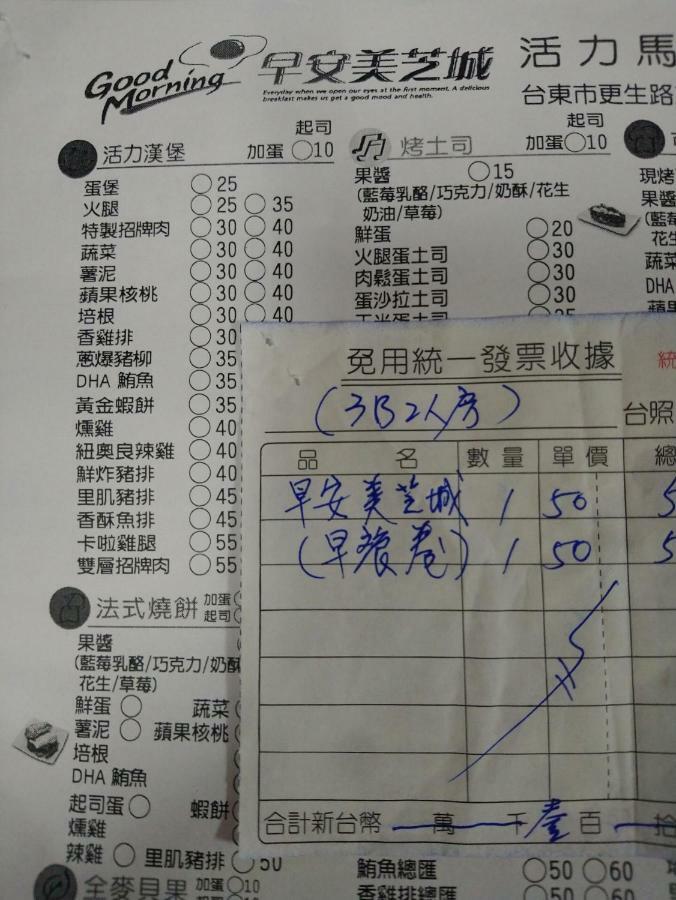 Good Morning 早安美芝城
Everyday when we open our eyes at the first moment. A delicious
breakfast makes us get a good mood and health.
活力馬
台東市更生路
活力漢堡 加蛋 起司 ○10
蛋堡 ○25
火腿 ○25 ○35
特製招牌肉 ○30 ○40
蔬菜 ○30 ○40
薯泥 ○30 ○40
蘋果核桃 ○30 ○40
培根 ○30 ○40
香雞排 ○30
蔥爆豬柳 ○35
DHA 鮪魚 ○35
黃金蝦餅 ○35
燻雞 ○40
紐奧良辣雞 ○40
鮮炸豬排 ○40
里肌豬排 ○45
香酥魚排 ○45
卡啦雞腿 ○55
雙層招牌肉 ○55
法式燒餅 加蛋 起司
果醬
(藍莓乳酪/巧克力/奶酥
花生/草莓)
鮮蛋 ○ 蔬菜
薯泥 ○ 蘋果核桃
培根
DHA 鮪魚
起司蛋 ○ 蝦餅
燻雞
辣雞 ○ 里肌豬排 ○50
全麥貝果 加蛋 ○10
烤土司 加蛋 起司 ○10
果醬 ○15
(藍莓乳酪/巧克力/奶酥/花生
奶油/草莓)
鮮蛋 ○20
火腿蛋土司 ○30
肉鬆蛋土司 ○30
蛋沙拉土司 ○30
現烤
果醬
(藍莓
花生
蔬菜
DHA
免用統一發票收據
統
(3B2人房)
台照
品名 數量 單價 總
早安美芝城 1 50 5
(早餐卷) 1 50 5
合計新台幣 萬 千 壹 百 拾
鮪魚總匯 ○50 ○60
香雞排總匯 ○50 ○60